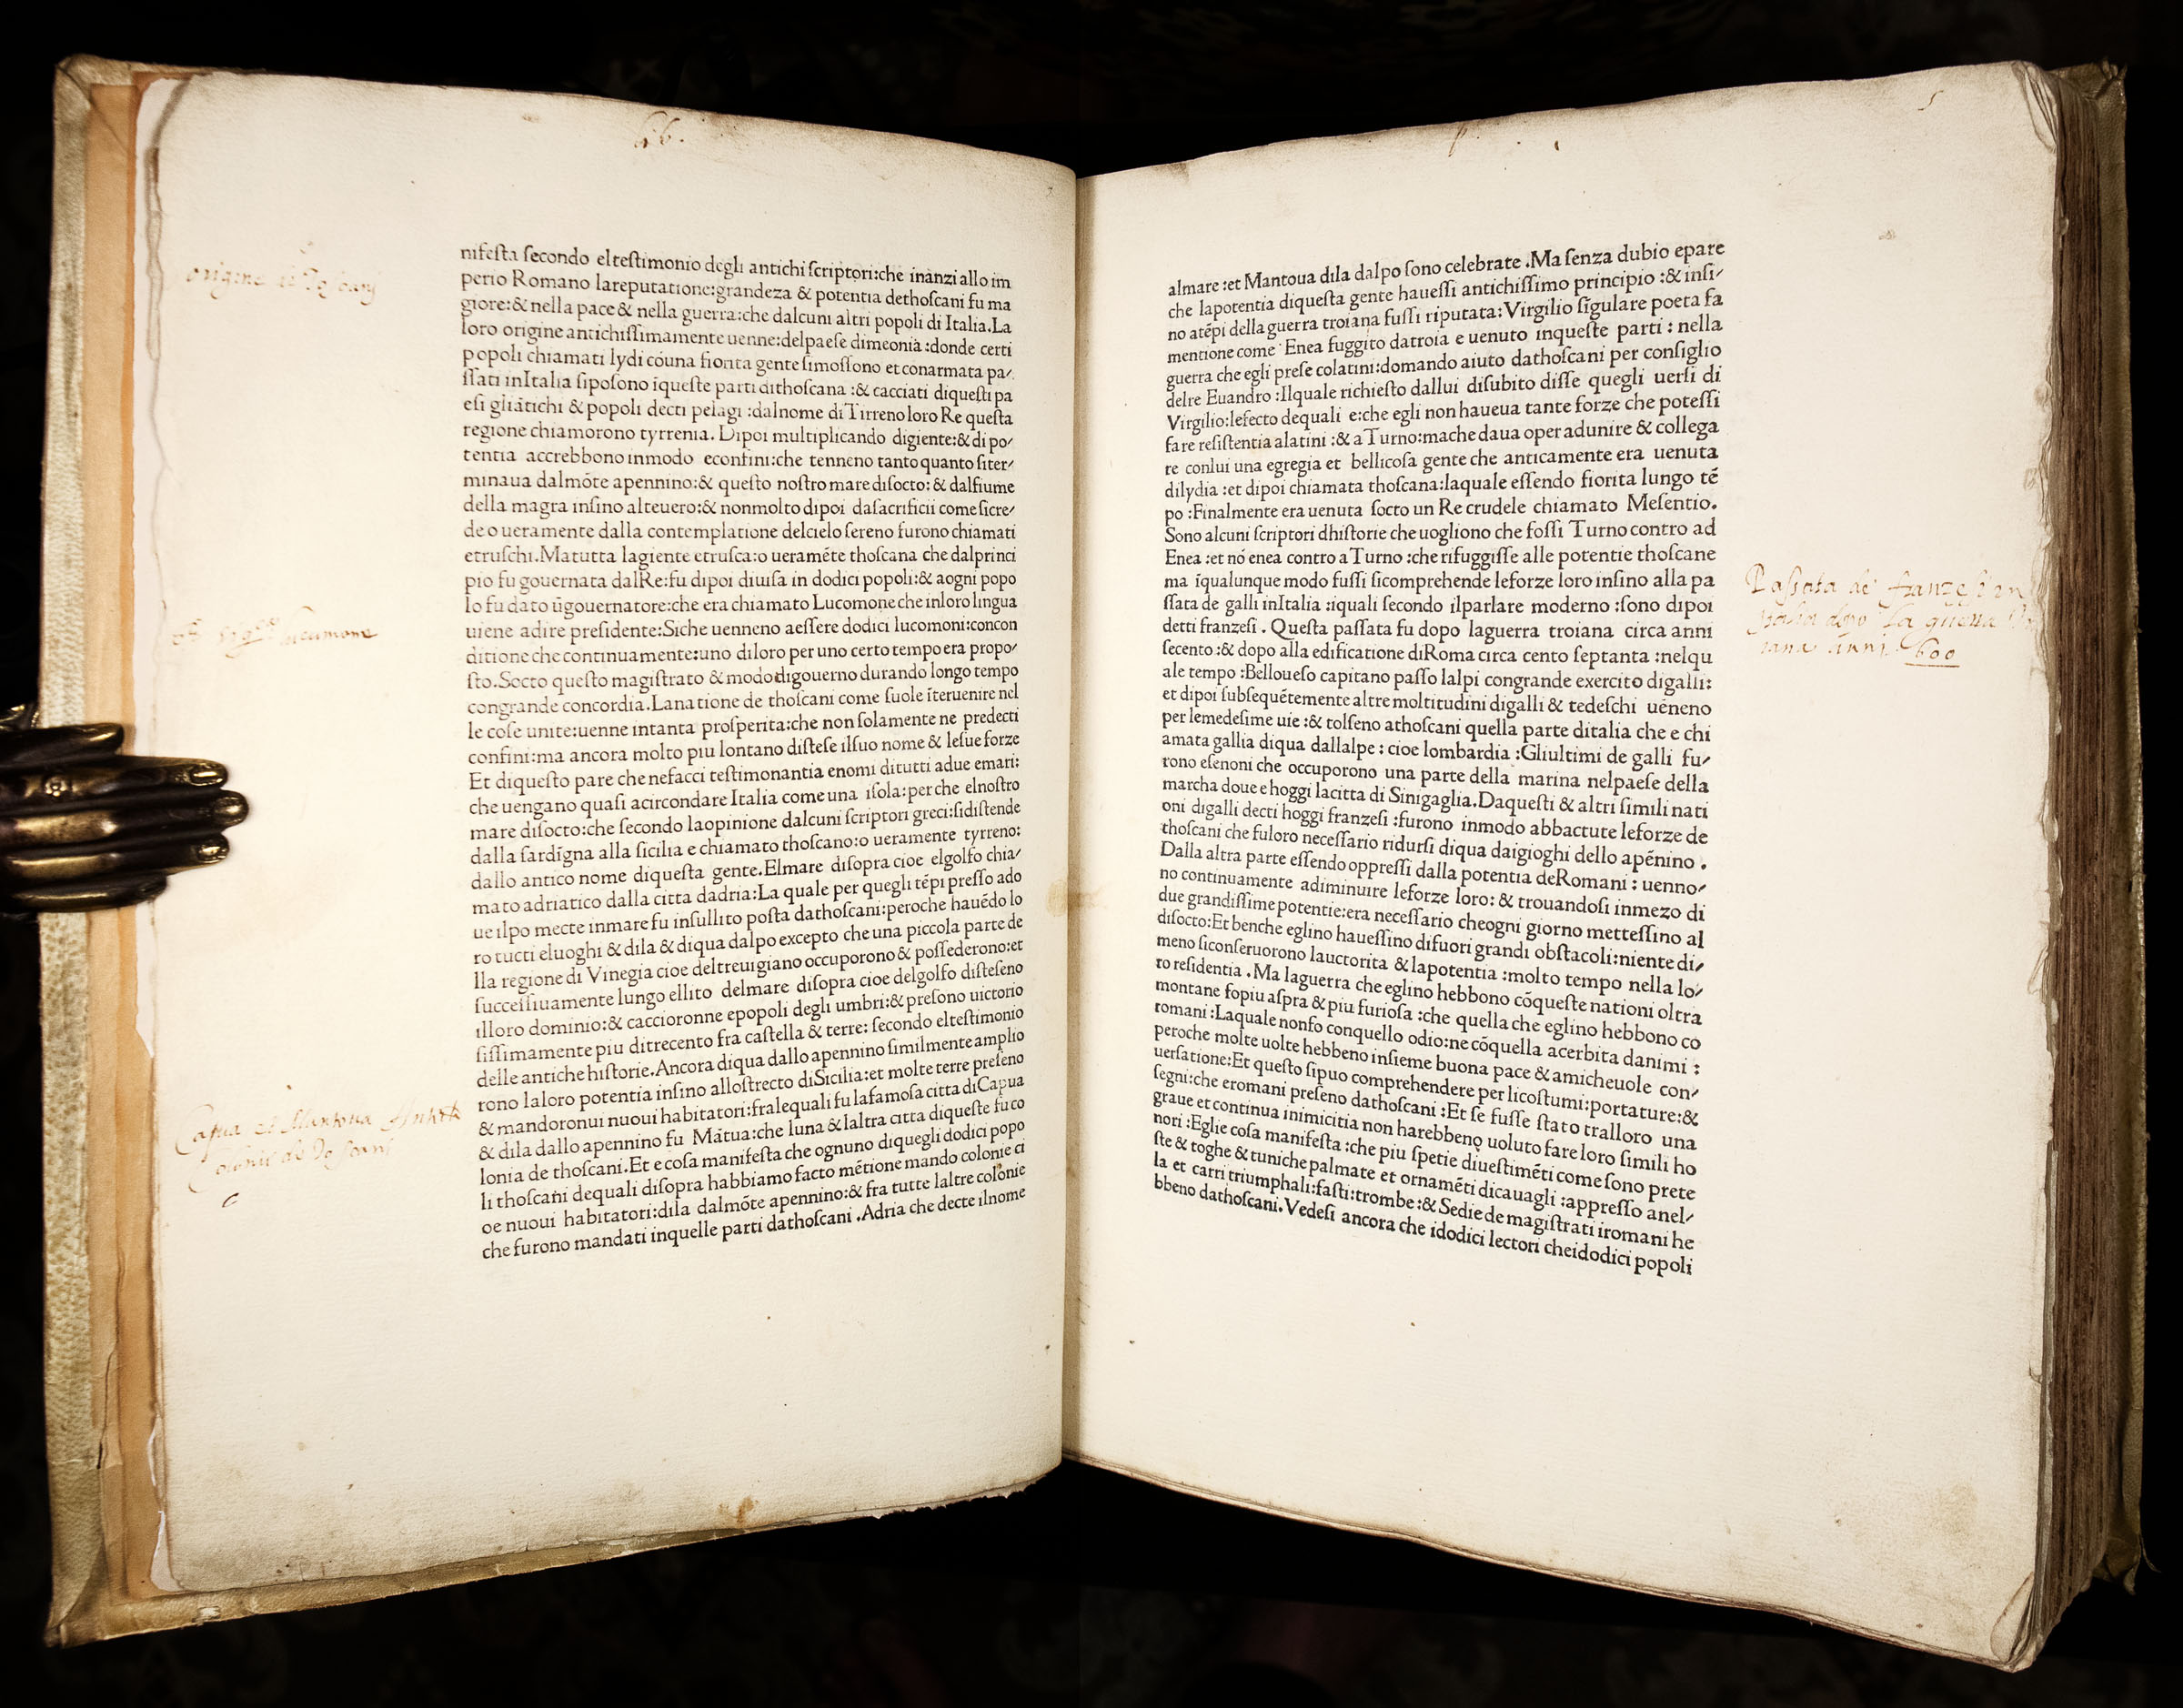 66.
nifesta secondo eltestimonio degli antichi scriptori:che inanzi allo im
perio Romano lareputatione:grandeza & potentia dethoscani fu ma
giore:& nella pace & nella guerra:che dalcuni altri popoli di Italia.La
loro origine antichissimamente uenne:delpaese dimeonia :donde certi
popoli chiamati lydi cóuna fiorita gente simossono et conarmata pa/
ssati inItalia siposono iqueste parti dithoscana :& cacciati diquesti pa
esi gliãtichi & popoli decti pelagi :dalnome di Tirreno loro Re questa
regione chiamorono tyrrenia. Dipoi multiplicando digiente:& di po/
tentia accrebbono inmodo econfini:che tenneno tanto quanto siter/
minaua dalmõte apennino:& questo nostro mare disocto: & dalfiume
della magra insino alteuero:& nonmolto dipoi dasacrificii come sicre/
de o ueramente dalla contemplatione delcielo sereno furono chiamati
etruschi.Matutta lagiente etrusca:o ueraméte thoscana che dalprinci
pio fu gouernata dalRe:fu dipoi diuisa in dodici popoli:& aogni popo
lo fu dato ũgouernatore:che era chiamato Lucomone che inloro lingua
uiene adire presidente:Siche uenneno aessere dodici lucomoni:concon
ditione che continuamente:uno diloro per uno certo tempo era propo/
sto.Socto questo magistrato & modo digouerno durando longo tempo
congrande concordia.Lanatione de thoscani come suole ĩteruenire nel
le cose unite:uenne intanta prosperita:che non solamente ne predecti
confini:ma ancora molto piu lontano distese ilsuo nome & lesue forze
Et diquesto pare che nefacci testimonantia enomi ditutti adue emari:
che uengano quasi acircondare Italia come una isola:perche elnostro
mare disocto:che secondo laopinione dalcuni scriptori greci:sidistende
dalla sardĩgna alla sicilia e chiamato thoscano:o ueramente tyrreno:
dallo antico nome diquesta gente.Elmare disopra cioe elgolfo chia/
mato adriatico dalla citta dadria:La quale per quegli tẽpi presso ado
ue ilpo mecte inmare fu insullito posta dathoscani:peroche hauẽdo lo
ro tucti eluoghi & dila & diqua dalpo excepto che una piccola parte de
lla regione di Vinegia cioe deltreuigiano occuporono & possederono:et
successiuamente lungo ellito delmare disopra cioe delgolfo disteseno
illoro dominio:& caccioronne epopoli degli umbri:& presono uictorio
sissimamente piu ditrecento fra castella & terre: secondo eltestimonio
delle antiche historie.Ancora diqua dallo apennino similmente amplio
rono laloro potentia insino allostrecto diSicilia:et molte terre preseno
& mandoronui nuoui habitatori:fralequali fu lafamosa citta diCapua
& dila dallo apennino fu Mãtua:che luna & laltra citta diqueste fu co
lonia de thoscani.Et e cosa manifesta che ognuno diquegli dodici popo
li thoscani dequali disopra habbiamo facto métione mando colonie ci
oe nuoui habitatori:dila dalmõte apennino:& fra tutte laltre colonie
che furono mandati inquelle parti dathoscani .Adria che decte ilnome
lucumone
Capua et Mantoua
5
almare :et Mantoua dila dalpo sono celebrate .Ma senza dubio epare
che lapotentia diquesta gente hauessi antichissimo principio :& insi/
no atẽpi della guerra troiana fussi riputata:Virgilio sĩgulare poeta fa
mentione come Enea fuggito datroia e uenuto inqueste parti : nella
guerra che egli prese colatini:domando aiuto dathoscani per consiglio
delre Euandro :Ilquale richiesto dallui disubito disse quegli uersi di
Virgilio:lefecto dequali e:che egli non haueua tante forze che potessi
fare resistentia alatini :& aTurno:mache daua oper adunire & collega
re conlui una egregia et bellicosa gente che anticamente era uenuta
dilydia :et dipoi chiamata thoscana:laquale essendo fiorita lungo tẽ
po :Finalmente era uenuta socto un Re crudele chiamato Mesentio.
Sono alcuni scriptori dhistorie che uogliono che fossi Turno contro ad
Enea :et nó enea contro aTurno :che rifuggisse alle potentie thoscane
ma ĩqualunque modo fussi sicomprehende leforze loro insino alla pa
ssata de galli inItalia :iquali secondo ilparlare moderno :sono dipoi
detti franzesi . Questa passata fu dopo laguerra troiana circa anni
secento :& dopo alla edificatione diRoma circa cento septanta :nelqu
ale tempo :Belloueso capitano passo lalpi congrande exercito digalli:
et dipoi subsequétemente altre moltitudini digalli & tedeschi uẽneno
per lemedesime uie :& tolseno athoscani quella parte ditalia che e chi
amata gallia diqua dallalpe : cioe lombardia :Gliultimi de galli fu/
rono esenoni che occuporono una parte della marina nelpaese della
marcha doue e hoggi lacitta di Sinigaglia.Daquesti & altri simili nati
oni digalli decti hoggi franzesi :furono inmodo abbactute leforze de
thoscani che fuloro necessario ridursi diqua daigioghi dello apẽnino .
Dalla altra parte essendo oppressi dalla potentia deRomani : uenno/
no continuamente adiminuire leforze loro: & trouandosi inmezo di
due grandissime potentie:era necessario cheogni giorno mettessino al
disocto:Et benche eglino hauessino difuori grandi obstacoli:niente di/
meno siconseruorono lauctorita & lapotentia :molto tempo nella lo/
ro residentia .Ma laguerra che eglino hebbono cõqueste nationi oltra
montane fopiu aspra & piu furiosa :che quella che eglino hebbono co
romani :Laquale nonfo conquello odio:ne cõquella acerbita danimi :
peroche molte uolte hebbeno insieme buona pace & amicheuole con/
uersatione:Et questo sipuo comprehendere per licostumi:portature:&
segni:che eromani preseno dathoscani :Et se fusse stato tralloro una
graue et continua inimicitia non harebbeno uoluto fare loro simili ho
nori :Eglie cosa manifesta :che piu spetie diuestimẽti come sono prete
ste & toghe & tuniche palmate et ornamẽti dicauagli :appresso anel/
la et carri triumphali:fasti:trombe :& Sedie de magistrati iromani he
bbeno dathoscani.Vedesi ancora che idodici lectori cheidodici popoli
Passata de franzesi in
Italia dopo la guerra
iana anni 600